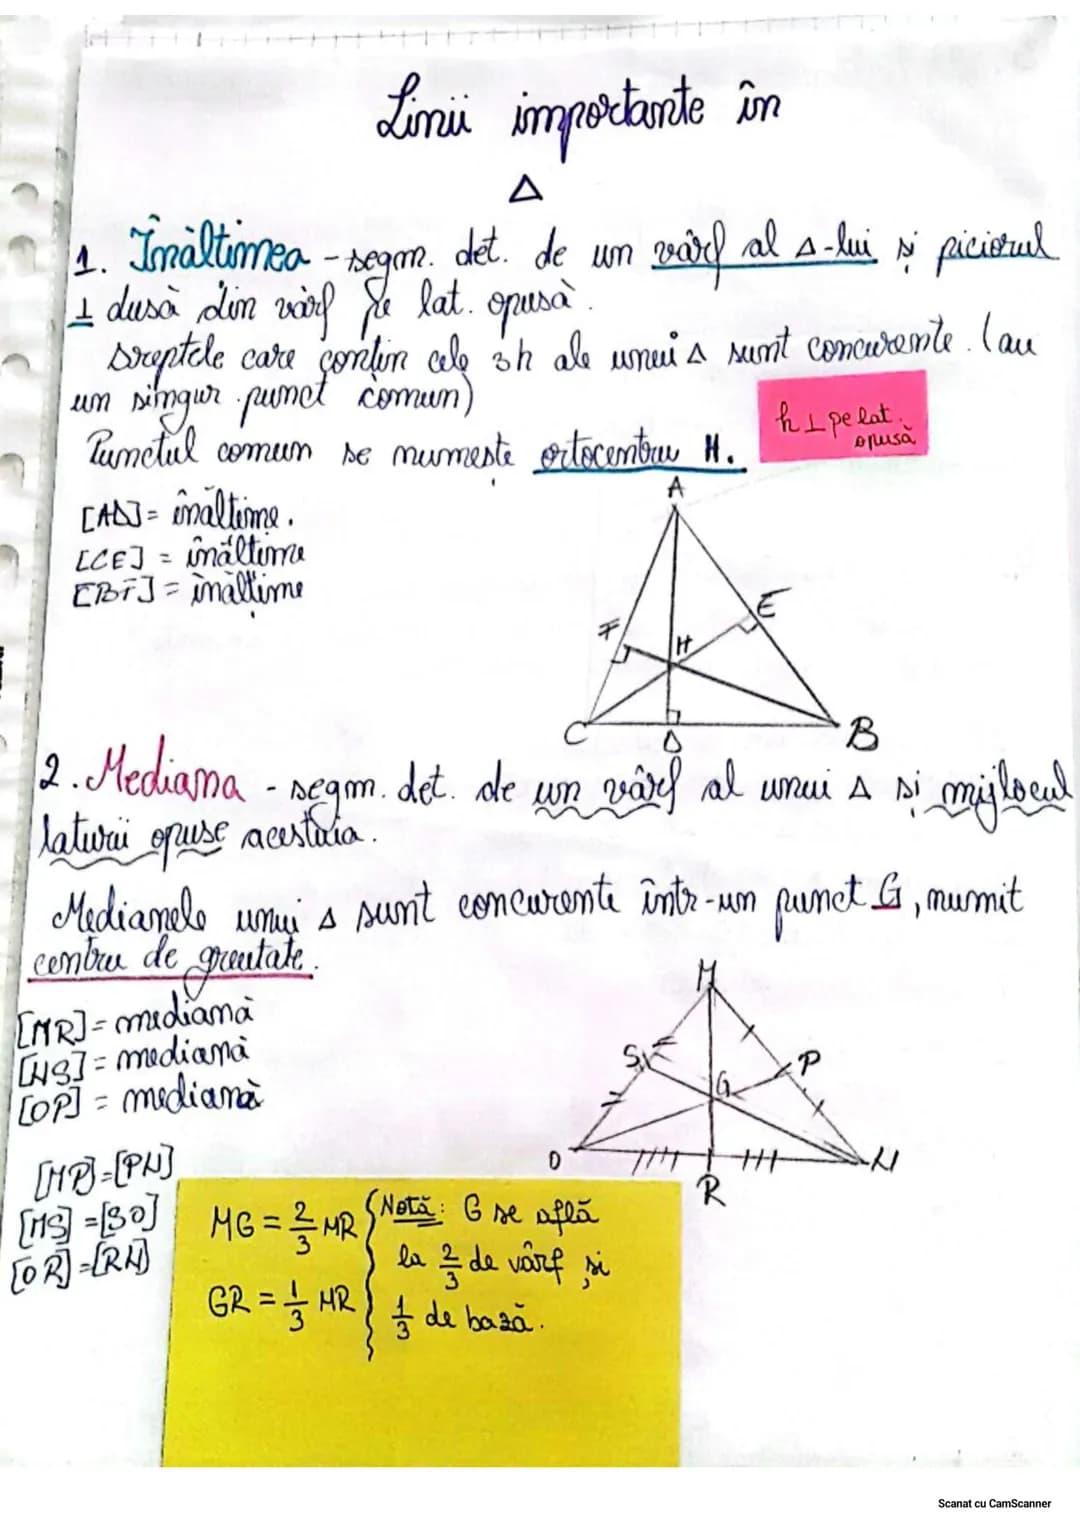 Linii importante în
Δ
1. Înălțimea - segm. det. de un vârf al Δ-lui și piciorul
⊥ dusă din vârf pe lat. opusă.
Dreptele care conțin cele 3 h ale unui Δ sunt concurente. (au
un singur punct comun)
h ⊥ pe lat.
opusă
Punctul comun se numește ortocentru H.
[AD] = înălțime.
[CE] = înălțime
[BF] = înălțime
A
E
F
H
C
D
B
2. Mediana - segm. det. de un vârf al unui Δ și mijlocul
laturii opuse acestuia.
Medianele unui Δ sunt concurente într-un punct G, numit
centru de greutate.
[MR] = mediană
[NS] = mediană
[OP] = mediană
M
S
P
G
O
N
R
[MP] = [PN]
[MS] = [SO]
[OR] = [RN]
MG = 2/3 MR
GR = 1/3 MR
Notă: G se află
la 2/3 de vârf și
1/3 de bază.
Scanat cu CamScanner